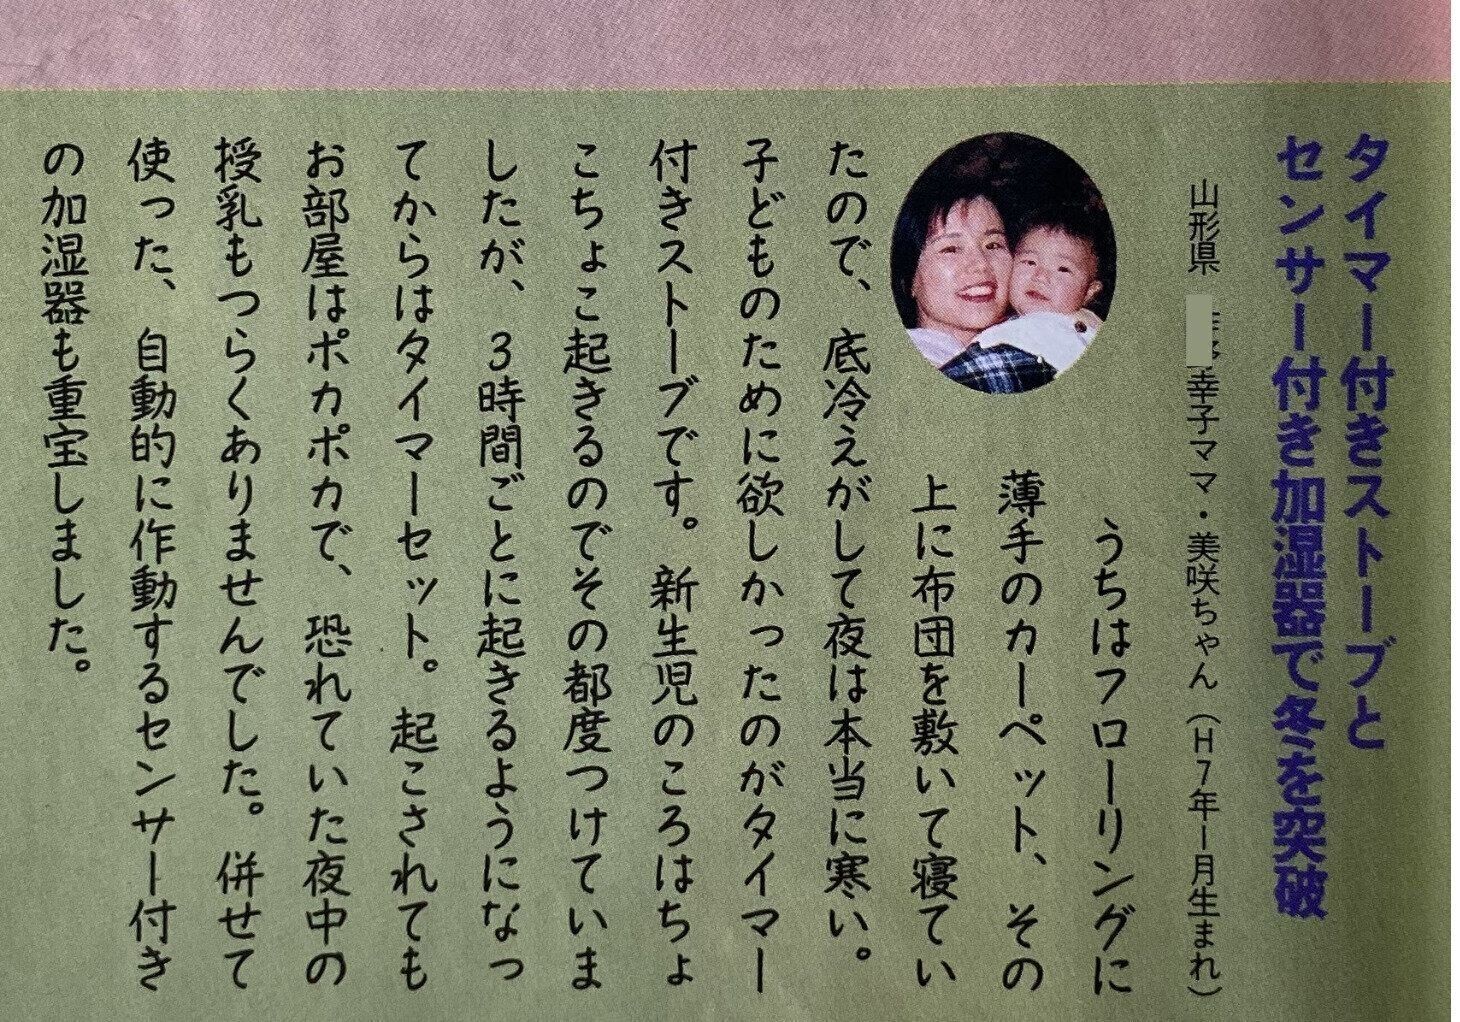 タイマー付きストーブと
センサー付き加湿器で冬を突破
山形県 幸子ママ・美咲ちゃん（H7年1月生まれ）
うちはフローリングに
薄手のカーペット、その
上に布団を敷いて寝てい
たので、底冷えがして夜は本当に寒い。
子どものために欲しかったのがタイマー
付きストーブです。新生児のころはちょ
こちょこ起きるのでその都度つけていま
したが、3時間ごとに起きるようになっ
てからはタイマーセット。起こされても
お部屋はポカポカで、恐れていた夜中の
授乳もつらくありませんでした。併せて
使った、自動的に作動するセンサー付き
の加湿器も重宝しました。